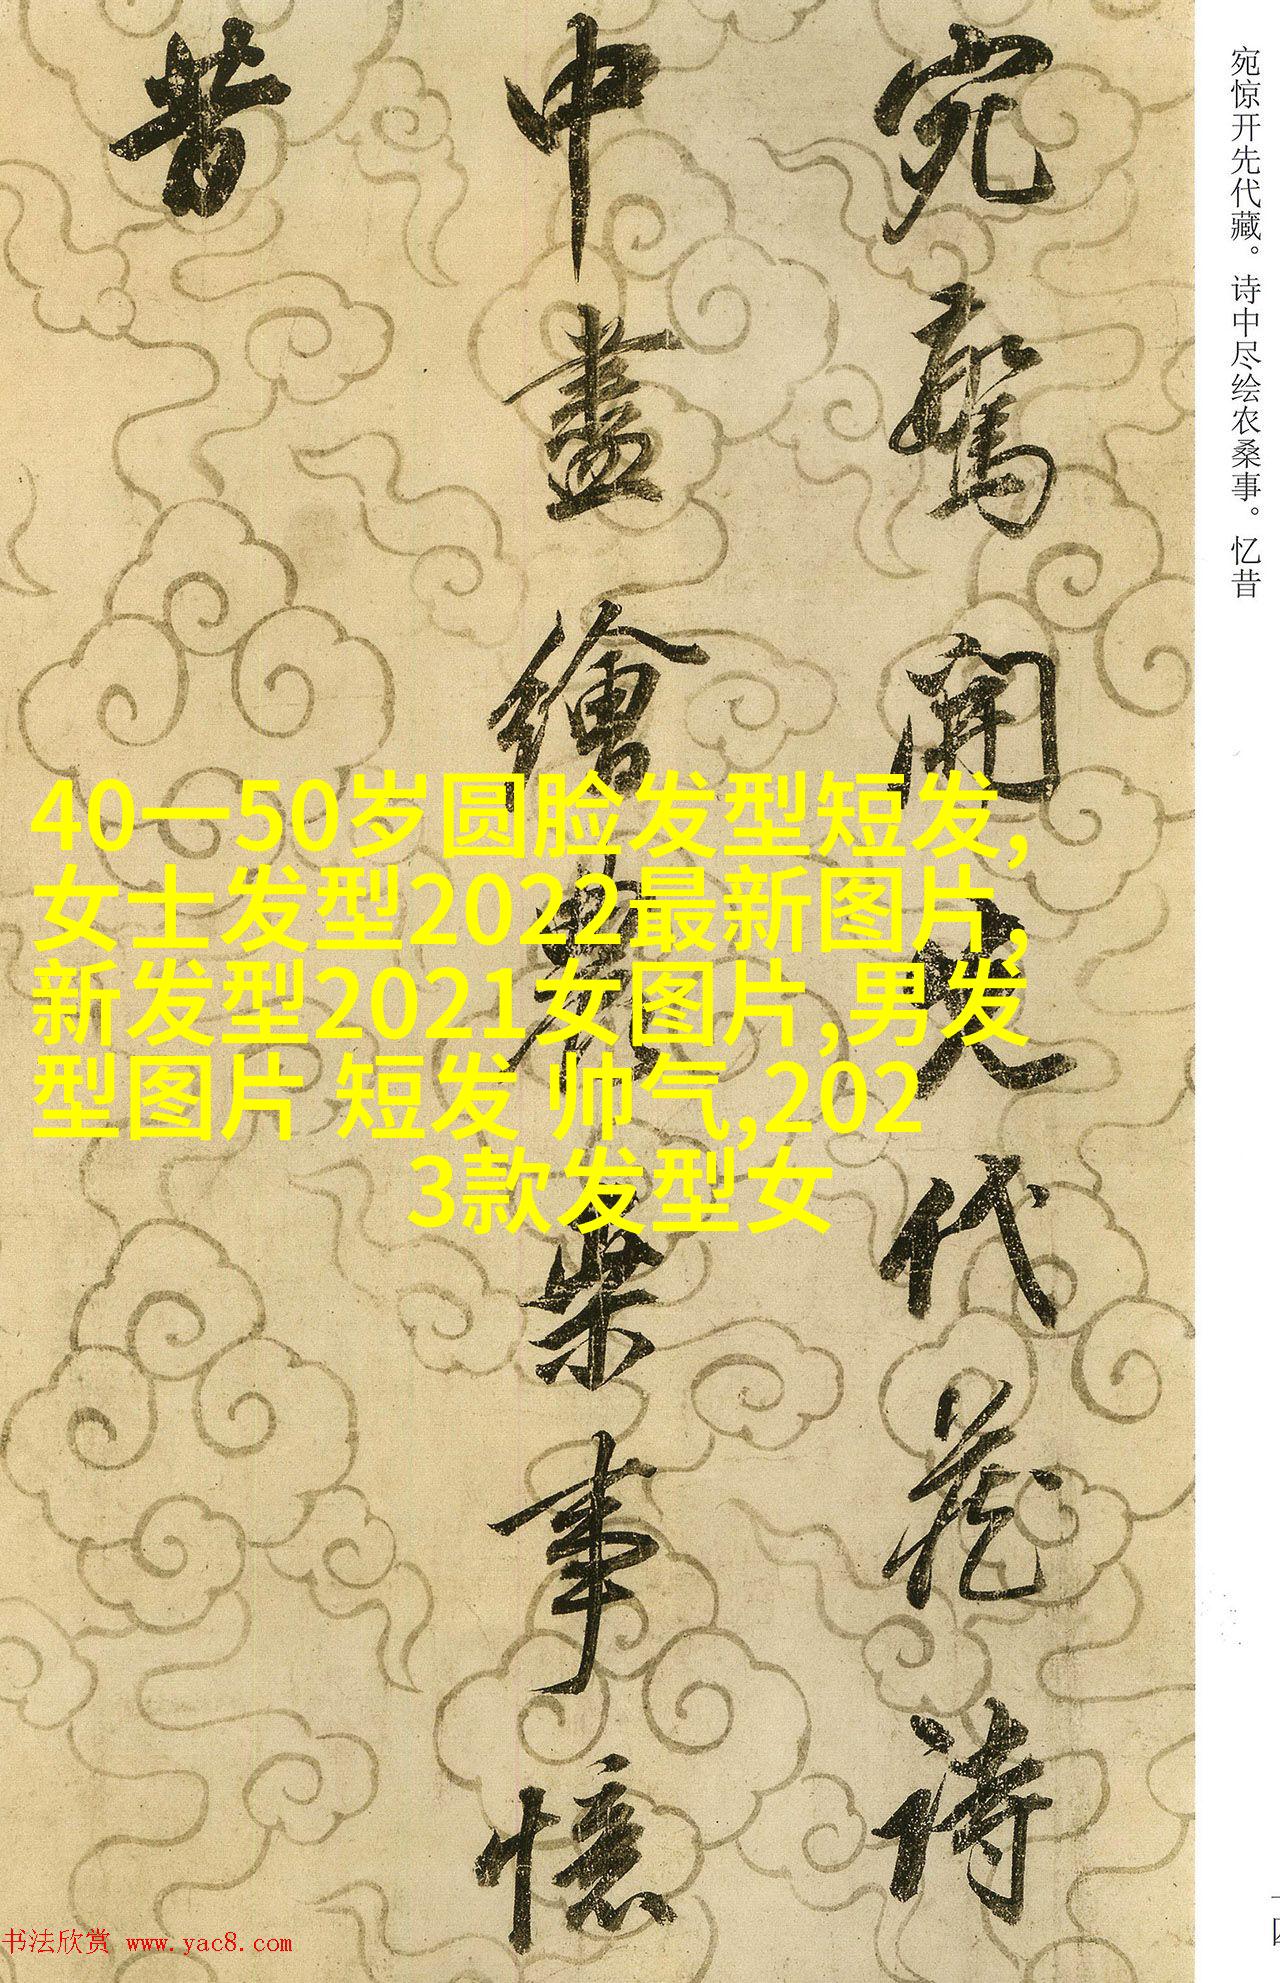 宛惊开先代藏。诗中尽绘农桑事。忆昔
宛驚開先代藏詩
中盡繪農桑事憶
昔
40一50岁圆脸发型短发,
女士发型2022最新图片,
新发型2021女图片,男发
型图片 短发 帅气,202
3款发型女
书法欣赏 www.yac8.com